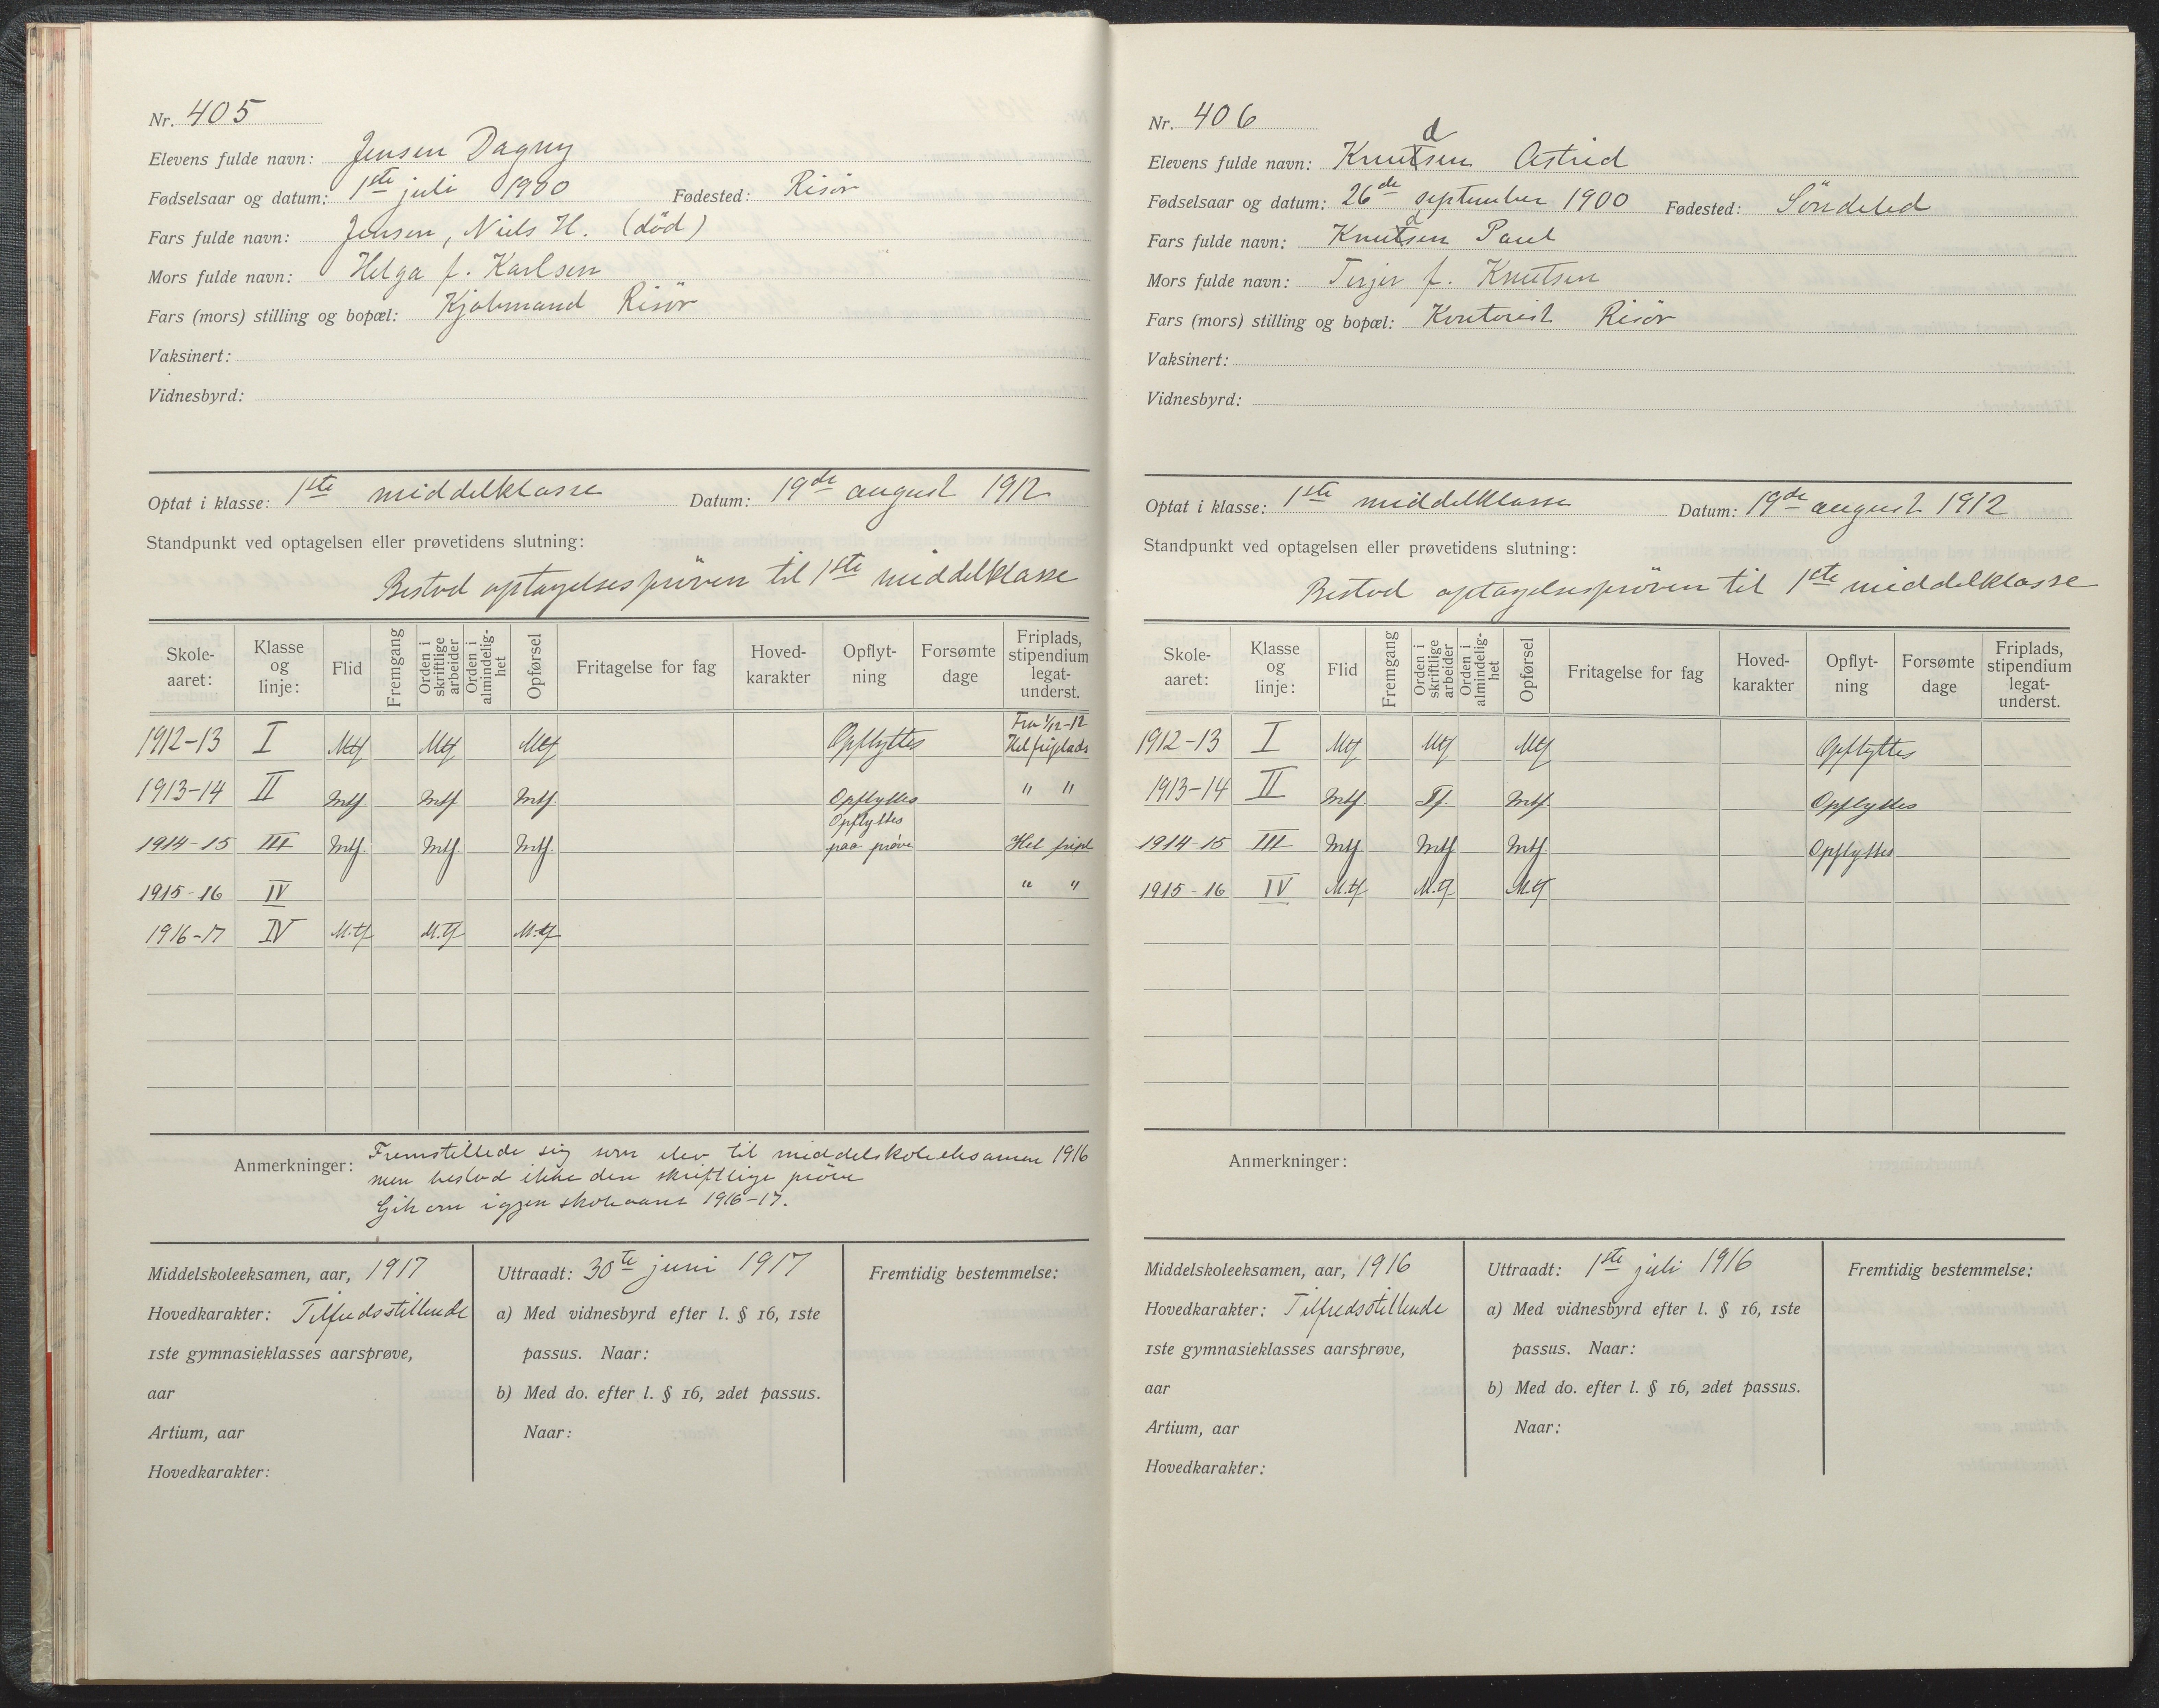 Nr. 405
Elevens fulde navn: Jensen Dagny
Fødselsaar og datum: 1ste juli 1900 Fødested: Risör
Fars fulde navn: Jensen, Niels H. (död)
Mors fulde navn: Helga f. Karlsen
Fars (mors) stilling og bopæl: Kjøbmand Risör
Vaksinert:
Vidnesbyrd:
Optat i klasse: 1ste middelklasse Datum: 19de august 1912
Standpunkt ved optagelsen eller prøvetidens slutning:
Bestod optagelsespröven til 1ste middelklasse
Skole-aaret: Klasse og linje: Flid Fremgang Orden i skriftlige arbeider Orden i almindelig-het Opførsel Fritagelse for fag Hoved-karakter Opflyt-ning Forsømte dage Friplads, stipendium legat-underst.
1912-13 I Mtf Mtf Mtf Opflyttes Fra 1/12-12 Hel friplads
1913-14 II Mtf Mtf Mtf Opflyttes " "
1914-15 III Mtf. Mtf Mtf. Opflyttes paa prøve Hel fripl
1915-16 IV " "
1916-17 IV M.tf M.tf M.tf
Anmerkninger: Fremstillede sig som elev til middelskoleeksamen 1916
men bestod ikke den skriftlige pröve
Gik om igjen skoleaaret 1916-17.
Middelskoleeksamen, aar, 1917
Hovedkarakter: Tilfredsstillende
1ste gymnasieklasses aarsprøve,
aar
Artium, aar
Hovedkarakter:
Uttraadt: 30te juni 1917
a) Med vidnesbyrd efter l. § 16, 1ste
passus. Naar:
b) Med do. efter l. § 16, 2det passus.
Naar:
Fremtidig bestemmelse:
Nr. 406
Elevens fulde navn: Knudsen Astrid
Fødselsaar og datum: 26de september 1900 Fødested: Söndeled
Fars fulde navn: Knudsen Paul
Mors fulde navn: Terjer f. Knutsen
Fars (mors) stilling og bopæl: Kontorist Risör
Vaksinert:
Vidnesbyrd:
Optat i klasse: 1ste middelklasse Datum: 19de august 1912
Standpunkt ved optagelsen eller prøvetidens slutning:
Bestod optagelsespröven til 1ste middelklasse
Skole-aaret: Klasse og linje: Flid Fremgang Orden i skriftlige arbeider Orden i almindelig-het Opførsel Fritagelse for fag Hoved-karakter Opflyt-ning Forsømte dage Friplads, stipendium legat-underst.
1912-13 I Mtf Mtf Mtf Opflyttes
1913-14 II Mtf Tf. Mtf Opflyttes
1914-15 III Mtf Mtf Mtf Opflyttes
1915-16 IV M.tf M.tf M.tf
Anmerkninger:
Middelskoleeksamen, aar, 1916
Hovedkarakter: Tilfredsstillende
1ste gymnasieklasses aarsprøve,
aar
Artium, aar
Hovedkarakter:
Uttraadt: 1ste juli 1916
a) Med vidnesbyrd efter l. § 16, 1ste
passus. Naar:
b) Med do. efter l. § 16, 2det passus.
Naar:
Fremtidig bestemmelse: